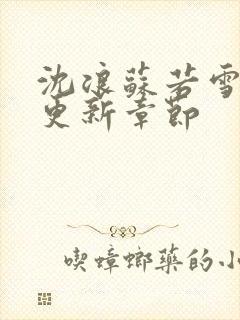 沈浪蘇若雪
更新章節
喫蟑螂藥的小